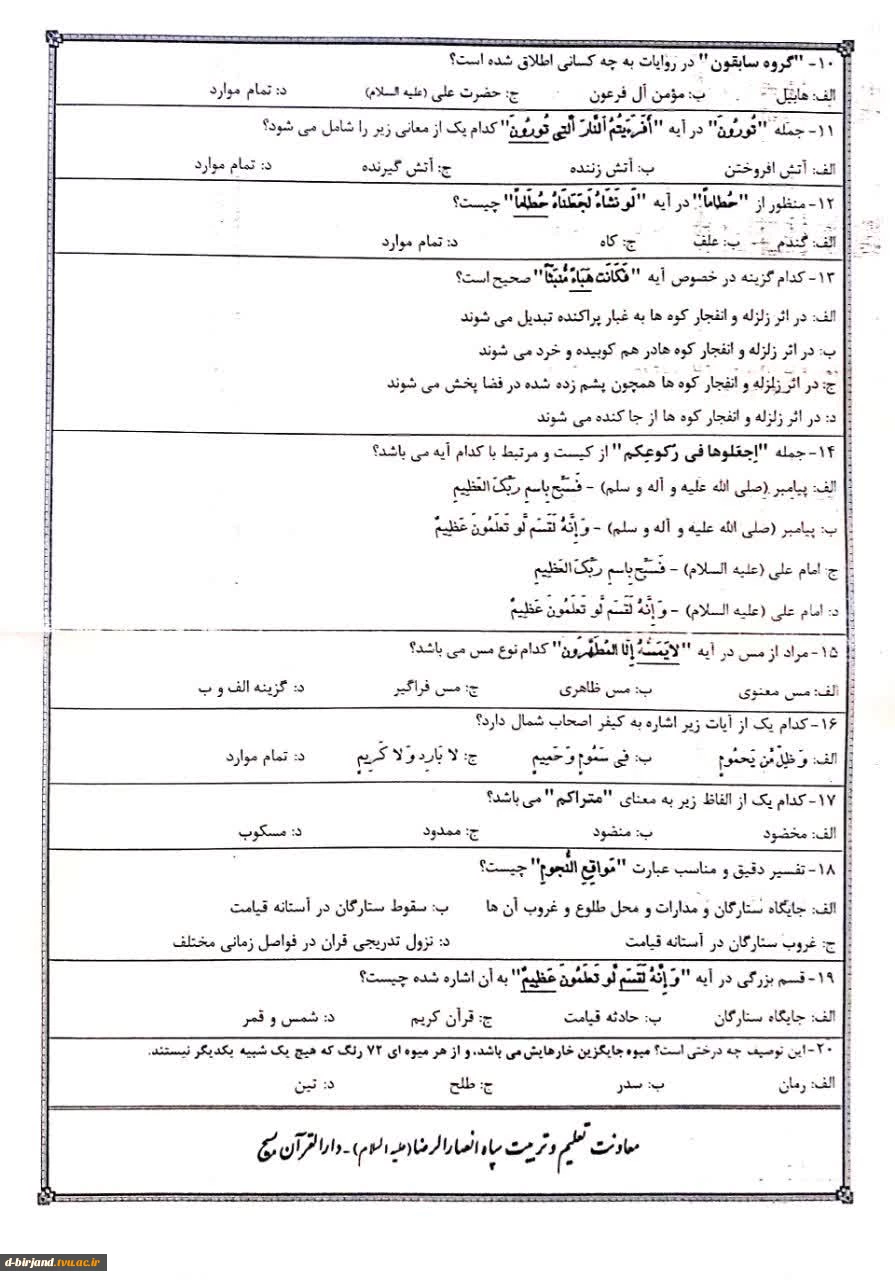 ۱۰- "گروه سابقون" در روایات به چه کسانی اطلاق شده است؟
الف: هابیل ب: مؤمن آل فرعون ج: حضرت علی (علیه السلام) د: تمام موارد
۱۱- جمله "تُورُونَ" در آیه "أَفَرَءَيتُمُ ٱلنَّارَ ٱلَّتِي تُورُونَ" کدام یک از معانی زیر را شامل می شود؟
الف: آتش افروختن ب: آتش زننده ج: آتش گیرنده د: تمام موارد
۱۲- منظور از "حُطاماً" در آیه "لَو نَشَاءُ لَجَعَلنَاهُ حُطَاماً" چیست؟
الف: گندم ب: علف ج: کاه د: تمام موارد
۱۳- کدام گزینه در خصوص آیه "فَكَانَت هَبَاءً مُنبَثّاً" صحیح است؟
الف: در اثر زلزله و انفجار کوه ها به غبار پراکنده تبدیل می شوند
ب: در اثر زلزله و انفجار کوه هادر هم کوبیده و خرد می شوند
ج: در اثر زلزله و انفجار کوه ها همچون پشم زده شده در فضا پخش می شوند
د: در اثر زلزله و انفجار کوه ها از جا کنده می شوند
۱۴- جمله "اِجعَلوها فی رُکوعِکم" از کیست و مرتبط با کدام آیه می باشد؟
الف: پیامبر (صلی الله علیه و آله و سلم) - فَسَبِّح بِاسمِ رَبِّكَ العَظِيمِ
ب: پیامبر (صلی الله علیه و آله و سلم) - وَإِنَّهُ لَقَسَم لَّو تَعلَمُونَ عَظِيمٌ
ج: امام علی (علیه السلام) - فَسَبِّح بِاسمِ رَبِّكَ العَظِيمِ
د: امام علی (علیه السلام) - وَإِنَّهُ لَقَسَم لَّو تَعلَمُونَ عَظِيمٌ
۱۵- مراد از مس در آیه "لايَمَسُّهُ إِلَّا المُطَهَّرُونَ" کدام نوع مس می باشد؟
الف: مس معنوی ب: مس ظاهری ج: مس فراگیر د: گزینه الف و ب
۱۶- کدام یک از آیات زیر اشاره به کیفر اصحاب شمال دارد؟
الف: وَظِلٍّ مِّن يَحمُومٍ ب: فِي سَمُومٍ وَحَمِيمٍ ج: لا بَارِدٍ وَلا كَرِيمٍ د: تمام موارد
۱۷- کدام یک از الفاظ زیر به معنای "متراکم" می باشد؟
الف: مخضود ب: منضود ج: ممدود د: مسکوب
۱۸- تفسیر دقیق و مناسب عبارت "مَواقِعِ النُّجومِ" چیست؟
الف: جایگاه ستارگان و مدارات و محل طلوع و غروب آن ها ب: سقوط ستارگان در آستانه قیامت
ج: غروب ستارگان در آستانه قیامت د: نزول تدریجی قران در فواصل زمانی مختلف
۱۹- قسم بزرگی در آیه "وَإِنَّهُ لَقَسَم لَّو تَعلَمُونَ عَظِيمٌ" به آن اشاره شده چیست؟
الف: جایگاه ستارگان ب: حادثه قیامت ج: قرآن کریم د: شمس و قمر
۲۰- این توصیف چه درختی است؟ میوه جایگزین خارهایش می باشد، و از هر میوه ای ۷۲ رنگ که هیچ یک شبیه یکدیگر نیستند.
الف: رمان ب: سدر ج: طلح د: تین
معاونت تعلیم و تربیت سپاه انصارالرضا (علیه السلام) - دارالقرآن بسیج
d-birjand.tvu.ac.ir